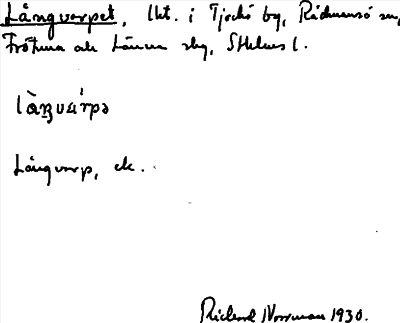 Långvarpet, lht. i Tjockö by, Rådmansö sn,
Frötuna och Länna skg, Sthlms l.
làŋvárpə
Långvarp, ek.
Rickard Norrman 1930.